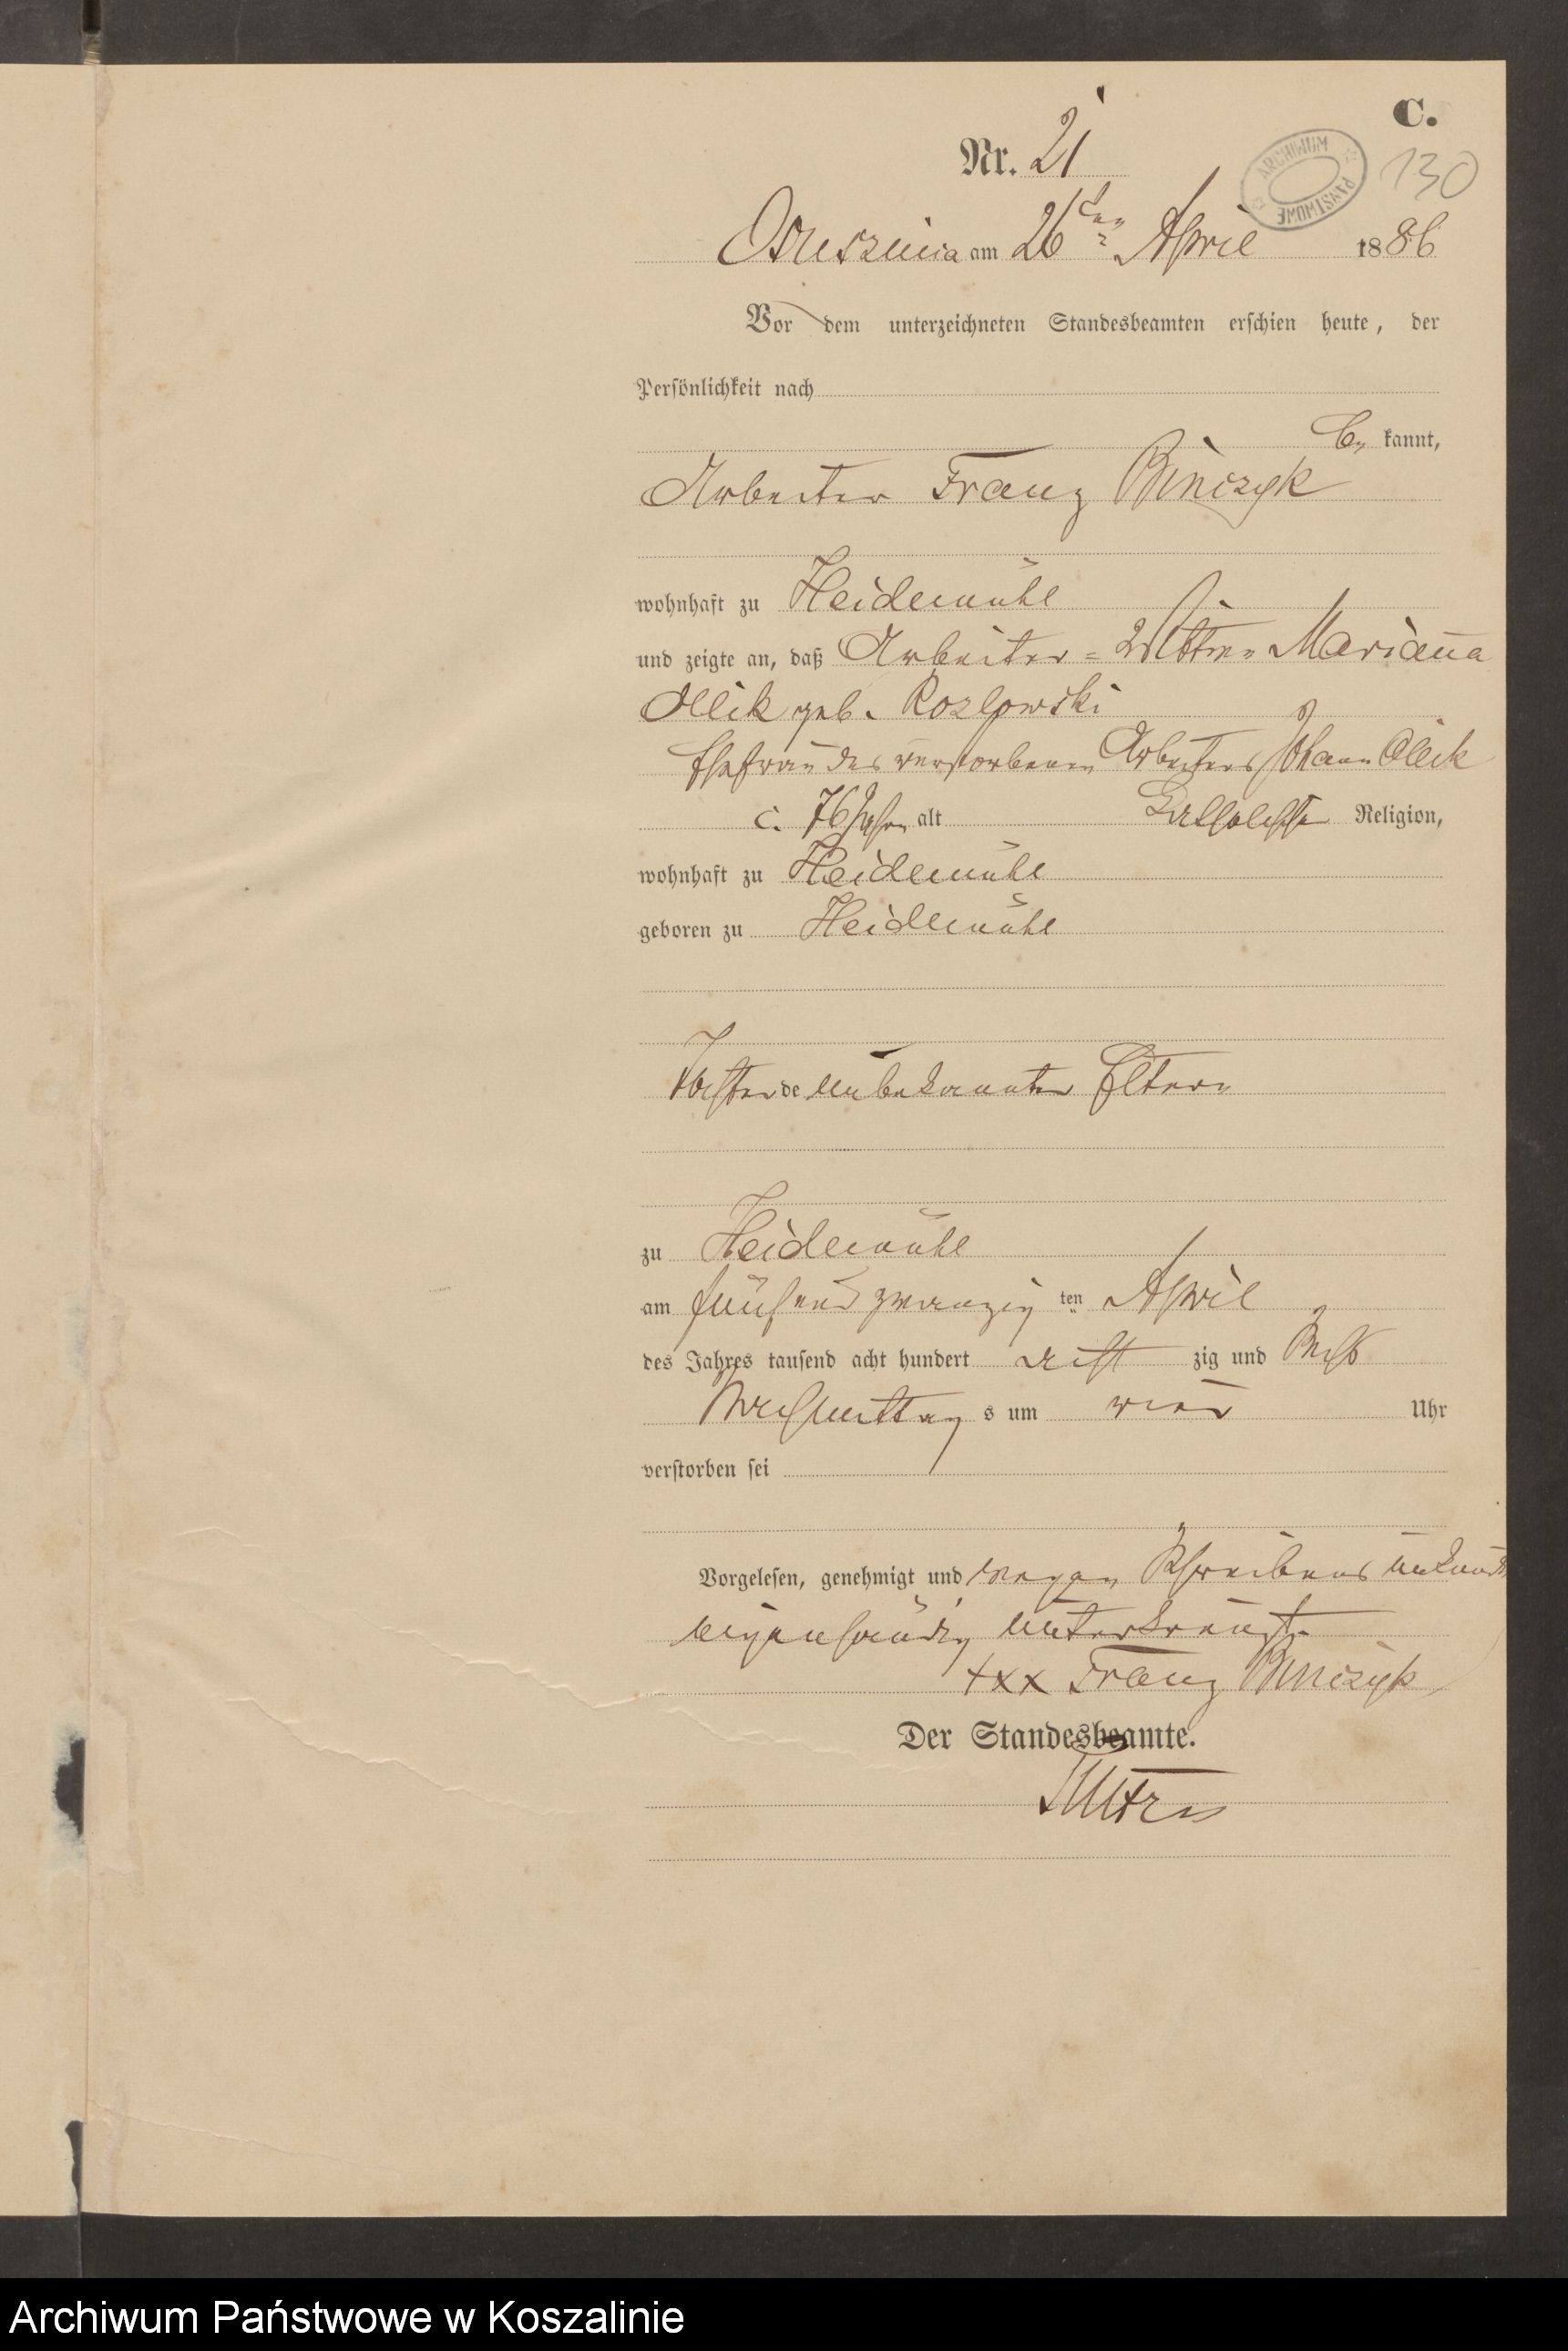 C.
Nr. 21
ARCHIWUM PAŃSTWOWE
130
am 26ten April 1886
Vor dem unterzeichneten Standesbeamten erschien heute, der
Persönlichkeit nach
be kannt,
Arbeiter Franz Binczyk
wohnhaft zu Heidemühl
und zeigte an, daß Arbeiter=Wittwe Marianna
Ollik geb. Kozlowski
Ehefrau des verstorbenen Arbeiters Johann Ollik
c. 76 Jahre alt katholischer Religion,
wohnhaft zu Heidemühl
geboren zu Heidemühl
Tochter de unbekannter Eltern
zu Heidemühl
am fünfundzwanzig ten April
des Jahres tausend acht hundert acht zig und sechs
Nachmittag s um vier Uhr
verstorben sei
Vorgelesen, genehmigt und wegen Schreibens unkunde
eigenhändig unterkreuzt.
+xx Franz Binczyk
Der Standesbeamte.
Archiwum Państwowe w Koszalinie